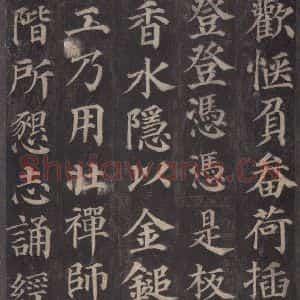 歡愜負畚荷插
登登憑憑是板
香水隱以金鎚
工乃用壯禪師
階所懇志誦經
Shufawang.cn